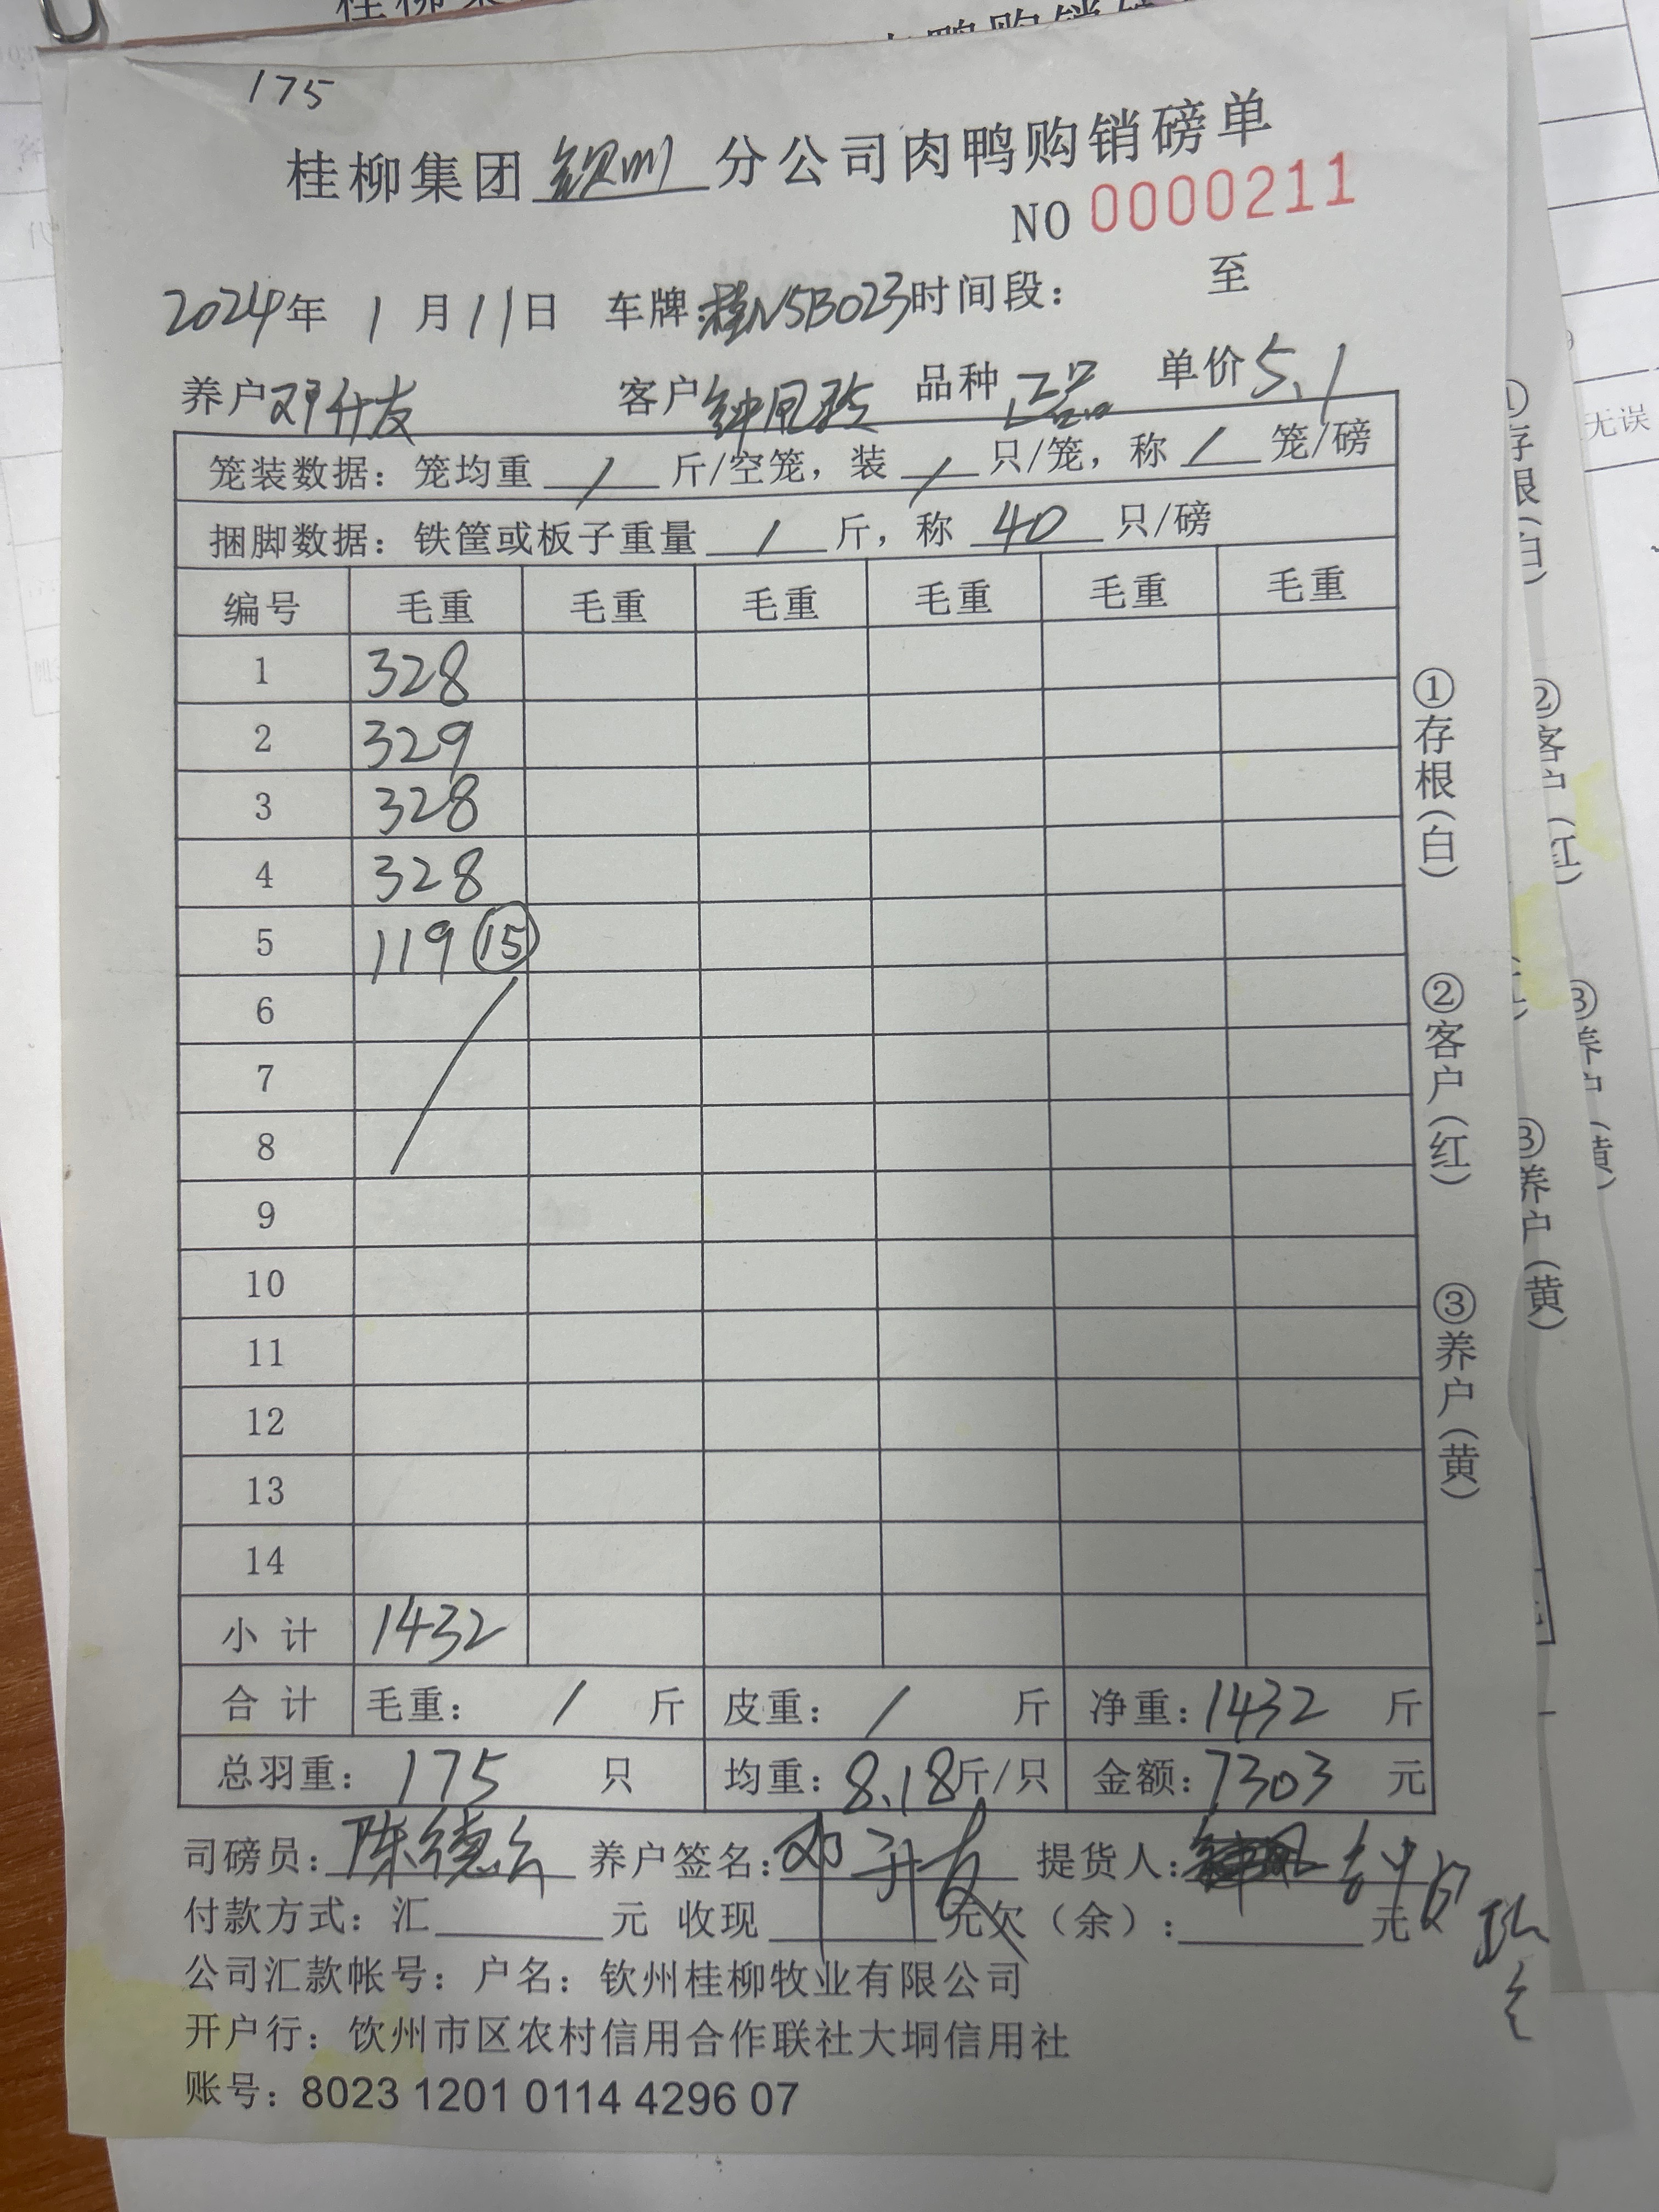 175
桂柳集团 钦州 分公司肉鸭购销磅单
NO 0000211
2024年 1月11日 车牌:桂N5B023 时间段: 至
养户 邓升友 客户 钟凤玲 品种 正品 单价 5.1
笼装数据:笼均重 / 斤/空笼,装 / 只/笼,称 / 笼/磅
捆脚数据:铁筐或板子重量 / 斤,称 40 只/磅
编号 毛重 毛重 毛重 毛重 毛重 毛重
1 328
2 329
3 328
4 328
5 119 ⑮
6
7
8
9
10
11
12
13
14
小计 1432
合计 毛重: / 斤 皮重: / 斤 净重:1432 斤
总羽重:175 只 均重:8.18斤/只 金额:7303 元
司磅员: 养户签名:邓升友 提货人:
付款方式:汇 元 收现 元欠(余): 元
公司汇款帐号:户名:钦州桂柳牧业有限公司
开户行:饮州市区农村信用合作联社大垌信用社
账号:8023 1201 0114 4296 07
①存根(白) ②客户(红) ③养户(黄)